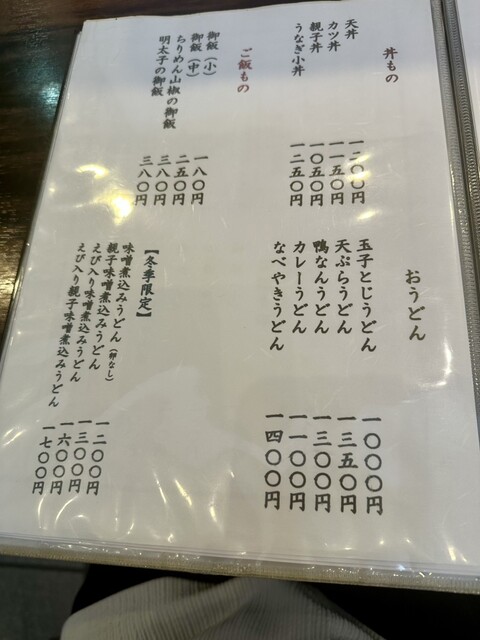 丼もの
天丼 一二〇〇円
カツ丼 一一五〇円
親子丼 一〇五〇円
うなぎ小丼 一二五〇円
ご飯もの
御飯(小) 一八〇円
御飯(中) 二五〇円
ちりめん山椒の御飯 三八〇円
明太子の御飯 三八〇円
おうどん
玉子とじうどん 一〇〇〇円
天ぷらうどん 一三五〇円
鴨なんうどん 一三〇〇円
カレーうどん 一一〇〇円
なべやきうどん 一四〇〇円
【冬季限定】
味噌煮込みうどん(卵なし) 一二〇〇円
親子味噌煮込みうどん 一三〇〇円
えび入り味噌煮込みうどん 一六〇〇円
えび入り親子味噌煮込みうどん 一七〇〇円